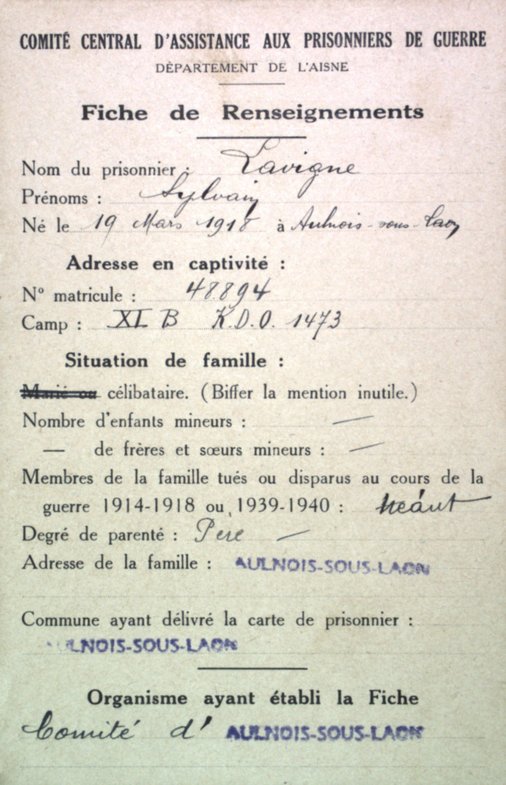 COMITÉ CENTRAL D'ASSISTANCE AUX PRISONNIERS DE GUERRE
DÉPARTEMENT DE L'AISNE
Fiche de Renseignements
Nom du prisonnier : Lavigne
Prénoms : Sylvain
Né le 19 Mars 1918 à Aulnois-sous-Laon
Adresse en captivité :
N° matricule : 48.894
Camp : XI B K.D.O. 1473
Situation de famille :
Marié ou célibataire. (Biffer la mention inutile.)
Nombre d'enfants mineurs : —
— de frères et sœurs mineurs : —
Membres de la famille tués ou disparus au cours de la
guerre 1914-1918 ou 1939-1940 : néant
Degré de parenté : Père —
Adresse de la famille : AULNOIS-SOUS-LAON
Commune ayant délivré la carte de prisonnier :
AULNOIS-SOUS-LAON
Organisme ayant établi la Fiche
Comité d' AULNOIS-SOUS-LAON